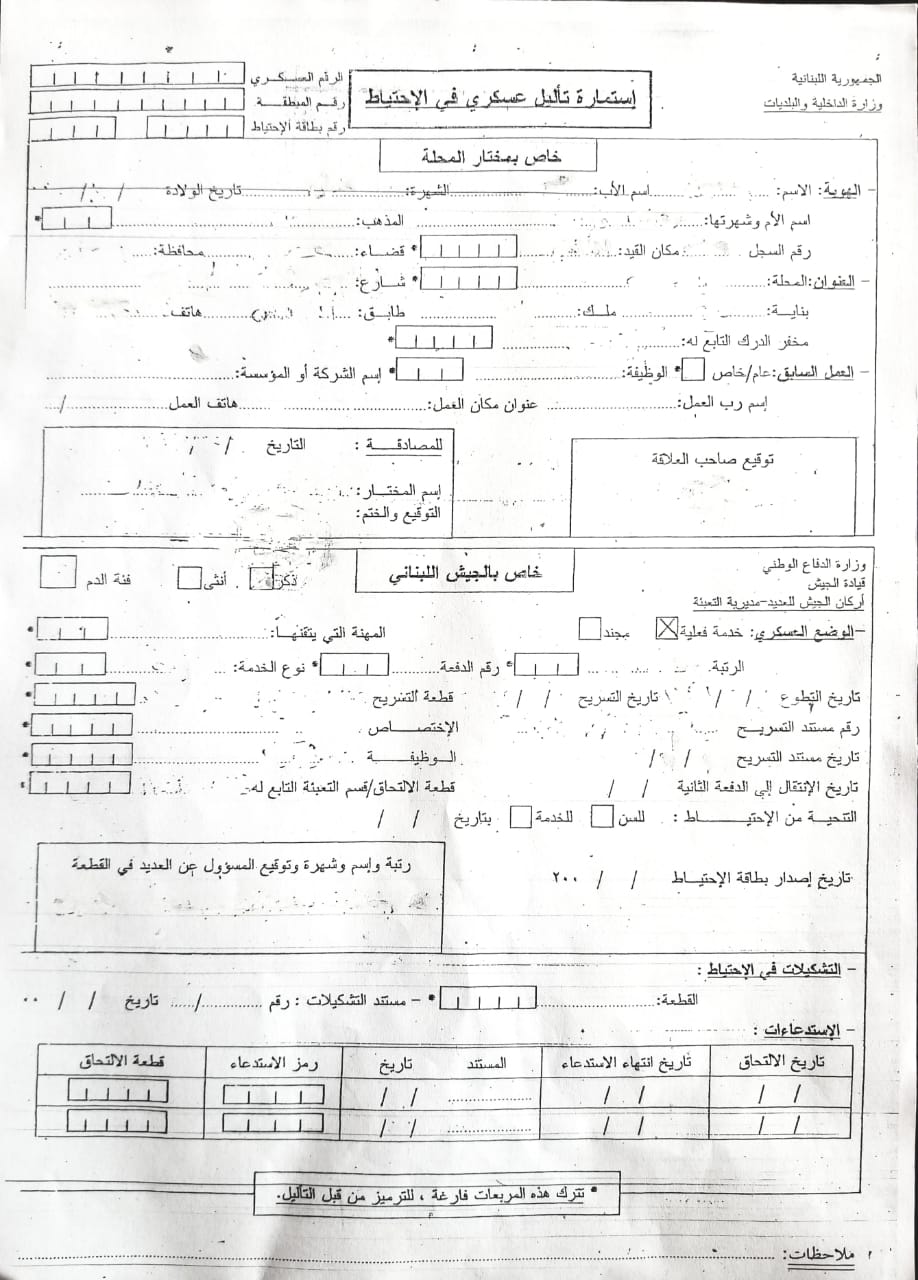 الجمهورية اللبنانية
وزارة الداخلية والبلديات
إستمارة تأليل عسكري في الإحتياط
الرقم العسكري
رقم المنطقة
رقم بطاقة الإحتياط
خاص بمختار المحلة
- الهوية: الاسم: اسم الأب: الشهرة: تاريخ الولادة / /
اسم الأم وشهرتها: المذهب: *
رقم السجل مكان القيد: * قضاء: محافظة:
- العنوان: المحلة: * شارع:
بناية: ملك: طابق: هاتف
مخفر الدرك التابع له: *
- العمل السابق: عام/خاص * الوظيفة: * إسم الشركة أو المؤسسة:
إسم رب العمل: عنوان مكان العمل: هاتف العمل /
توقيع صاحب العلاقة
للمصادقة : التاريخ / /
إسم المختار:
التوقيع والختم:
وزارة الدفاع الوطني
قيادة الجيش
أركان الجيش للعديد-مديرية التعبئة
خاص بالجيش اللبناني
ذكر أنثى فئة الدم
- الوضع العسكري: خدمة فعلية مجند المهنة التي يتقنها: *
الرتبة * رقم الدفعة * نوع الخدمة: *
تاريخ التطوع / / تاريخ التسريح / / قطعة التسريح *
رقم مستند التسريح الإختصاص *
تاريخ مستند التسريح / / الوظيفة *
تاريخ الإنتقال إلى الدفعة الثانية / / قطعة الالتحاق/قسم التعبئة التابع له *
التنحية من الإحتياط : للسن للخدمة بتاريخ / /
رتبة وإسم وشهرة وتوقيع المسؤول عن العديد في القطعة
تاريخ إصدار بطاقة الإحتياط / / ٢٠٠
- التشكيلات في الإحتياط :
القطعة: * - مستند التشكيلات : رقم / تاريخ / / ٠٠
- الإستدعاءات :
تاريخ الالتحاق تاريخ انتهاء الاستدعاء المستند تاريخ رمز الاستدعاء قطعة الالتحاق
/ / / / / /
/ / / / / /
* تترك هذه المربعات فارغة ، للترميز من قبل التأليل.
ملاحظات: